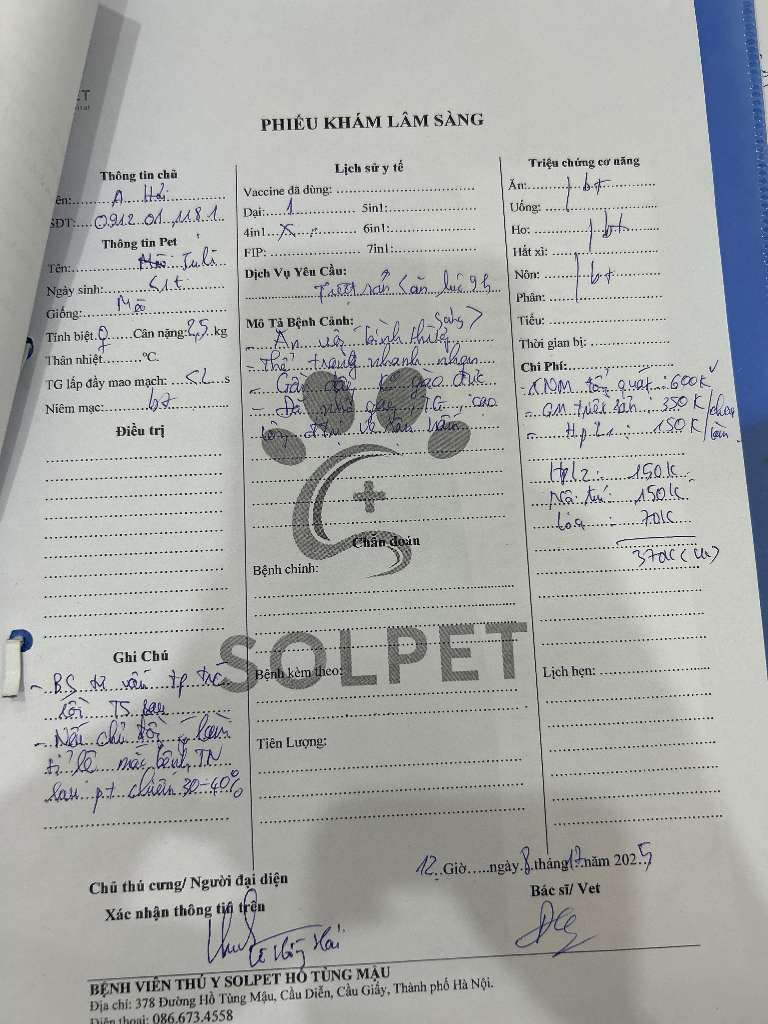 PHIẾU KHÁM LÂM SÀNG
Thông tin chủ
ên: A Hải
SĐT: 0912.01.1181
Thông tin Pet
Tên: Mèo Juli
Ngày sinh: <1t
Giống: Mèo
Tính biệt ♀ Cân nặng: 2,5 kg
Thân nhiệt ºC.
TG lấp đầy mao mạch: <2 s
Niêm mạc: bt
Điều trị
Ghi Chú
- BS tư vấn
TS sau
- Nếu chủ làm
tỉ lệ mắc bệnh TN
sau pt chiếm 30-40%
Lịch sử y tế
Vaccine đã dùng:
Dại: 1 5in1:
4in1 X 6in1:
FIP: 7in1:
Dịch Vụ Yêu Cầu:
Triệt sản <ăn lúc 9h
sáng>
Mô Tả Bệnh Cảnh:
- Ăn uống bình thường
- Thể trạng nhanh nhẹn
- Gần đây gào đực
- Đã cao
Chẩn đoán
Bệnh chính:
Bệnh kèm theo:
Tiên Lượng:
Triệu chứng cơ năng
Ăn: bt
Uống:
Ho: bt
Hắt xì:
Nôn: bt
Phân:
Tiểu:
Thời gian bị:
Chi Phí:
- XNM tổng quát: 600K
- GM triệt sản: 350K/
- Hpl1: 150K/
Hpl2: 150K
150K
loa: 70K
370K
Lịch hẹn:
SOLPET
12 Giờ.....ngày 8 tháng 12 năm 2025
Chủ thú cưng/ Người đại diện
Xác nhận thông tin trên
Bác sĩ/ Vet
BỆNH VIỆN THÚ Y SOLPET HỒ TÙNG MẬU
Địa chỉ: 378 Đường Hồ Tùng Mậu, Cầu Diễn, Cầu Giấy, Thành phố Hà Nội.
Điện thoại: 086.673.4558